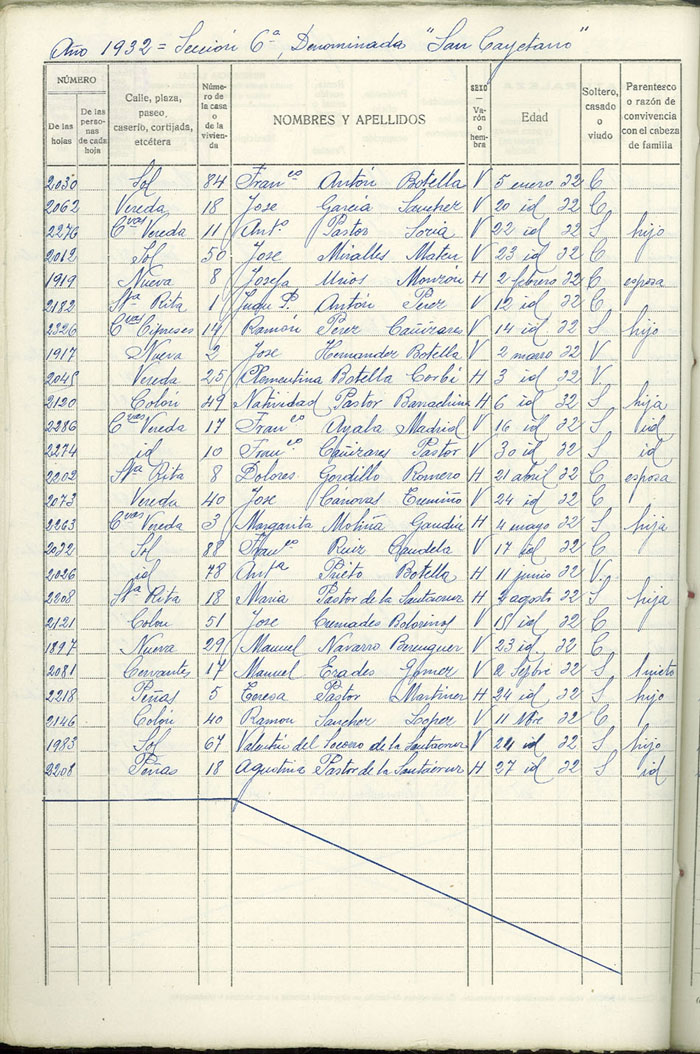 Año 1932 = Sección 6ª, Denominada "San Cayetano"
NÚMERO
De las hojas
De las personas de cada hoja
Calle, plaza, paseo, caserío, cortijada, etcétera
Número de la casa o de la vivienda
NOMBRES Y APELLIDOS
SEXO — Varón o hembra
Edad
Soltero, casado o viudo
Parentesco o razón de convivencia con el cabeza de familia
2030 Sol 84 Franco Antón Botella V 5 enero 32 C
2062 Vereda 18 Jose García Sanchez V 20 id 32 C
2276 Cvas Vereda 11 Anto Pastor Soria V 22 id 32 S hijo
2012 Sol 50 Jose Miralles Mateu V 23 id 32 C
1919 Nueva 8 Josefa Urios Monzón H 2 febrero 32 C esposa
2182 Sta Rita 1 Juan P. Antón Perez V 12 id 32 C
2326 Cva Cipreses 14 Ramón Perez Cañizares V 14 id 32 S hijo
1917 Nueva 2 Jose Hernandez Botella V 2 marzo 32 V
2045 Vereda 25 Clementina Botella Corbí H 3 id 32 V
2120 Colón 49 Natividad Pastor Barrachina H 6 id 32 S hija
2286 Cvas Vereda 17 Franco Ayala Madrid V 16 id 32 S id
2274 id 10 Franco Cañizares Pastor V 30 id 32 S id
2202 Sta Rita 8 Dolores Gordillo Romero H 21 abril 32 C esposa
2073 Vereda 40 Jose Cánovas V 24 id 32 C
2263 Cvas Vereda 3 Margarita Molina H 4 mayo 32 S hija
2032 Sol 88 Franco Ruiz Candela V 17 id 32 C
2026 id 78 Anta Prieto Botella H 11 junio 32 V.
2208 Sta Rita 18 Maria Pastor de la Santacruz H 9 agosto 32 S hija
2121 Colon 51 Jose Cremades V 18 id 32 C
1897 Nueva 29 Manuel Navarro Berenguer V 23 id 32 C
2081 Cervantes 17 Manuel Erades Gomez V 2 Sepbre 32 S
2218 Peñas 5 Teresa Pastor Martinez H 24 id 32 S hijo
2146 Colón 40 Ramon Sanchez Lopez V 11 32 C
1983 Sol 67 Valentín del Socorro de la Santacruz V 24 id 32 S hijo
2208 Peñas 18 Agustina Pastor de la Santacruz H 27 id 32 S id